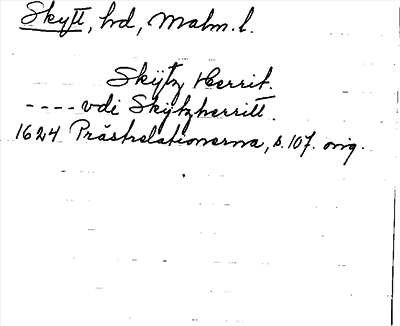 Skytt, hd, Malm. l.
Skÿtz Herrit.
---- vdi Skÿtzherritt.
1624 Prästrelationerna, s. 107. orig.